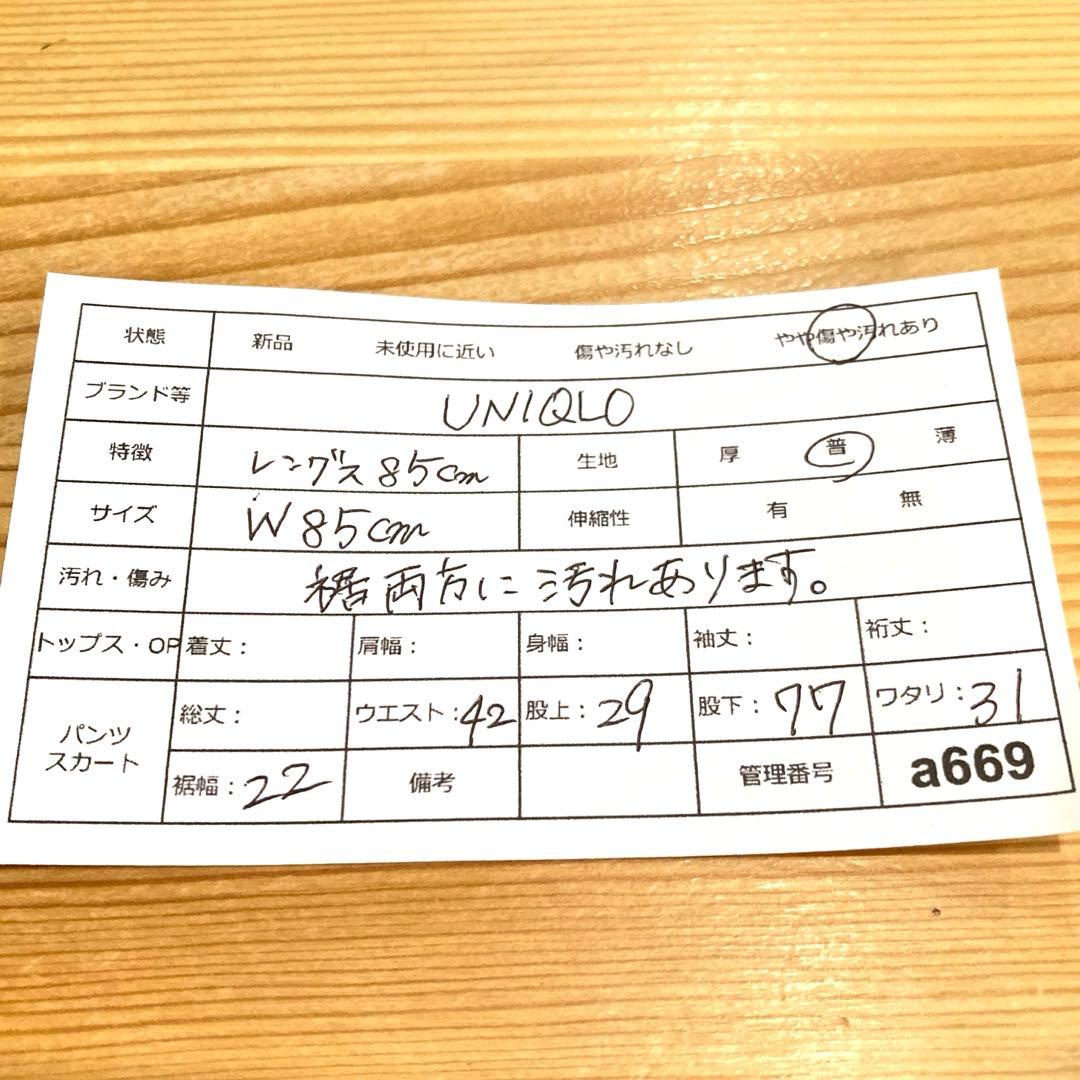 状態 新品 未使用に近い 傷や汚れなし やや傷や汚れあり
ブランド等 UNIQLO
特徴 レングス85cm 生地 厚 普 薄
サイズ W85cm 伸縮性 有 無
汚れ・傷み 裾両方に汚れあります。
トップス・OP 着丈: 肩幅: 身幅: 袖丈: 裄丈:
パンツ
スカート
総丈: ウエスト:42 股上:29 股下:77 ワタリ:31
裾幅:22 備考 管理番号 a669